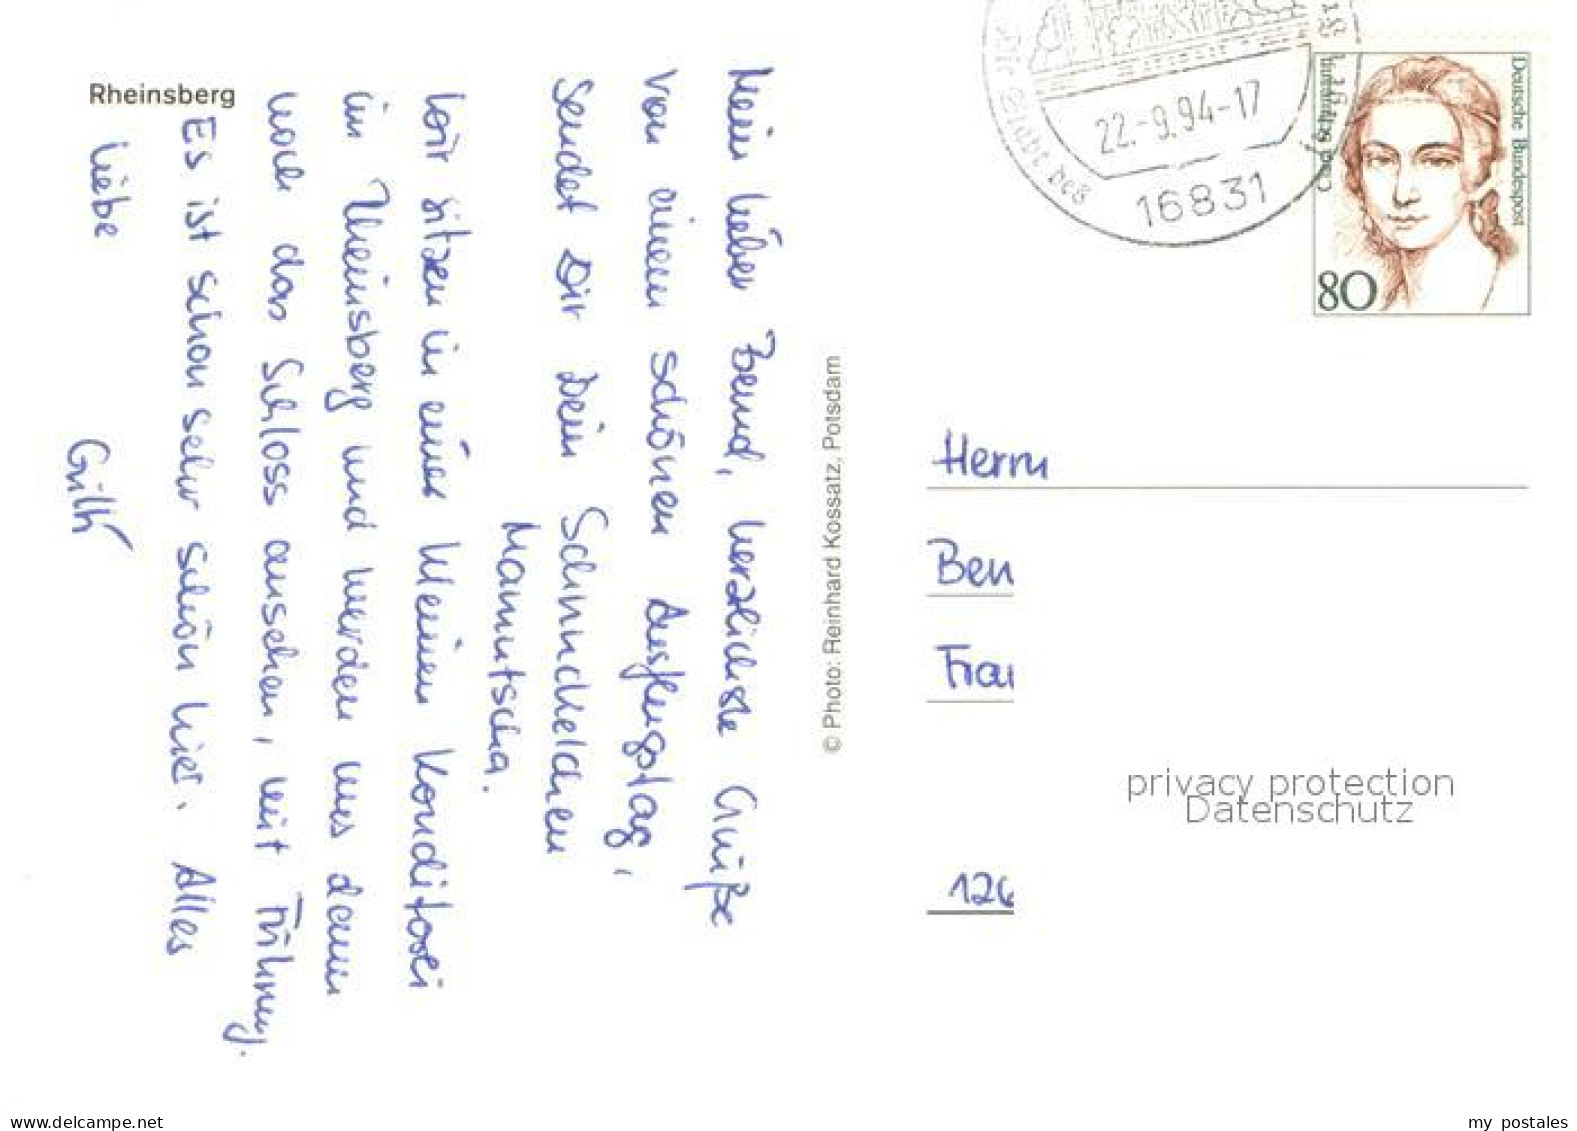 Rheinsberg
Mein lieber Bernd, herzlichste Grüße
von einem schönen Ausflugstag,
sendet Dir Dein Schnuckelchen
Mamutscha.
Wir sitzen in einer kleinen Konditorei
in Rheinsberg und werden uns dann
noch das Schloss ansehen, mit Führung.
Es ist schon sehr schön hier. Alles
Liebe
© Photo: Reinhard Kossatz, Potsdam
22.-9.94-17
16831
Deutsche Bundespost
Clara Schumann
80
Herrn
Ben
Fra
126
privacy protection
Datenschutz
www.delcampe.net
my_postales